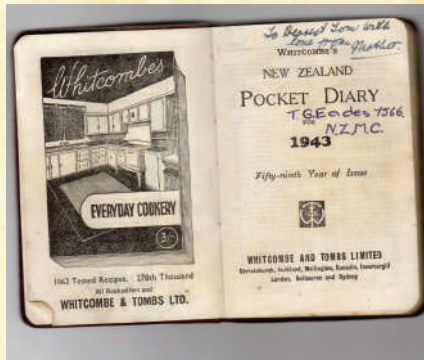 Whitcombe's
EVERYDAY COOKERY
3/-
1062 Tested Recipes. 278th Thousand
All Booksellers and
WHITCOMBE & TOMBS LTD.
To Dearest Tom with
love from
Mother.
WHITCOMBE'S
NEW ZEALAND
POCKET DIARY
T.G.Eades 7566
FOR
N.Z.M.C.
1943
Fifty-ninth Year of Issue
WHITCOMBE AND TOMBS LIMITED
Christchurch, Auckland, Wellington, Dunedin, Invercargill
London, Melbourne and Sydney